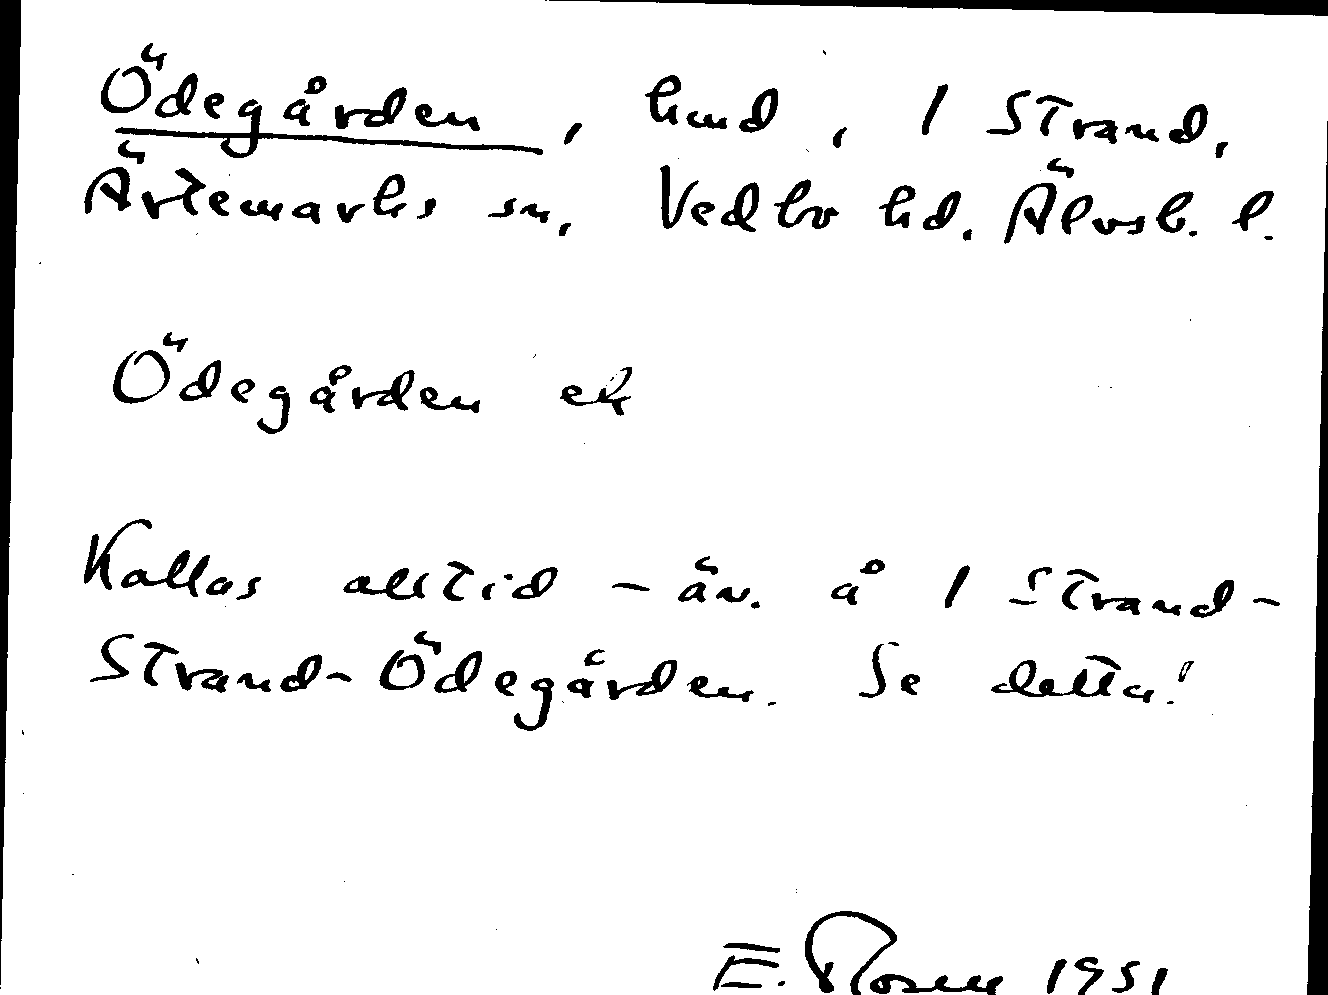 Ödegården, hmd, 1 Strand,
Ärtemarks sn, Vedbo hd. Älvsb. l.
Ödegården ek
Kallas alltid - äv. å 1 Strand -
Strand-Ödegården. Se detta!
E. Rosen 1951